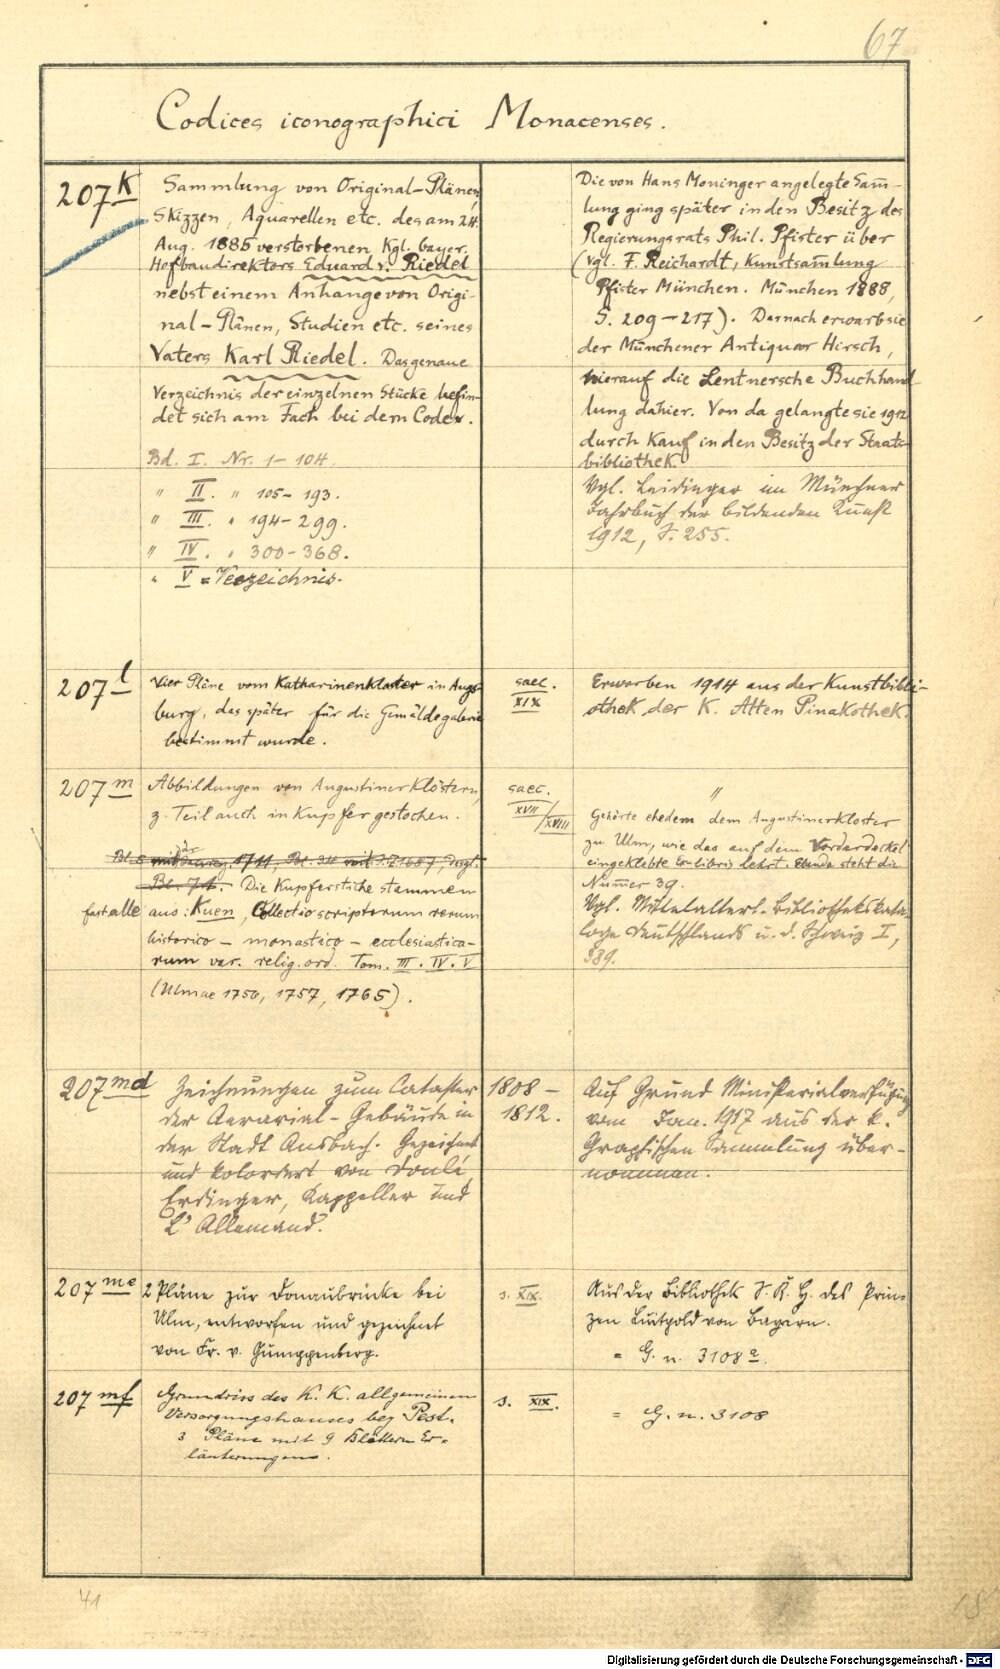 67
Codices iconographici Monacenses.
207 k
Sammlung von Original-Plänen,
Skizzen, Aquarellen etc. des am 24.
Aug. 1885 verstorbenen Kgl. bayer.
Hofbaudirektors Eduard v. Riedel
nebst einem Anhange von Origi-
nal-Plänen, Studien etc. seines
Vaters Karl Riedel. Das genaue
Verzeichnis der einzelnen Stücke befin-
det sich am Fach bei dem Codex.
Bd. I. Nr. 1-104.
" II. " 105-193.
" III. " 194-299.
" IV. " 300-368.
" V = Verzeichnis.
Die von Hans Moninger angelegte Sam̄-
lung ging später in den Besitz des
Regierungsrats Phil. Pfister über
(vgl. F. Reichardt, Kunstsam̄lung
Pfister München. München 1888,
S. 209-217). Darnach erwarb sie
der Münchener Antiquar Hirsch,
hierauf die Lentnersche Buchhand-
lung dahier. Von da gelangte sie 1912
durch Kauf in den Besitz der Staats-
bibliothek.
Vgl. Leidinger im Münchner
Jahrbuch der bildenden Kunst
1912, S. 255.
207 l
Vier Pläne vom Katharinenkloster in Augs-
burg, das später für die Gemäldegalerie
bestimmt wurde.
saec.
XIX
Erworben 1914 aus der Kunstbibli-
othek der K. Alten Pinakothek.
207 m
Abbildungen von Augustinerklöstern,
z. Teil auch in Kupfer gestochen.
Bl. 74. Die Kupferstiche stammen
fast alle aus: Kuen, Collectio scriptorum rerum
historico - monastico - ecclesiastica-
rum var. relig. ord. Tom. III. IV. V
(Ulmae 1756, 1757, 1765).
saec.
XVII/XVIII
"
Gehörte ehedem dem Augustinerkloster
zu Ulm, wie das auf dem Vorderdeckel
eingeklebte Ex-libris lehrt. Ebenda steht die
Num̄er 39.
Vgl. Mittelalterl. Bibliothekskata-
loge Deutschlands u. d. Schweiz I,
389.
207 md
Zeichnungen zum Cataster
der Aerarial-Gebäude in
der Stadt Ansbach. Gezeichnet
und koloriert von
Erdinger, Kappeller und
L'Allemand.
1808 -
1812.
Auf Grund Ministerialverfügung
vom Jan. 1917 aus der k.
Graphischen Sammlung über-
nommen.
207 me
2 Pläne zur Donaubrücke bei
Ulm, entworfen und gezeichnet
von Fr. v. Gumppenberg.
s. XIX.
Aus der Bibliothek S. K. H. des Prin-
zen Luitpold von Bayern.
= G. n. 3108 a.
207 mf
Grundriss des K. K. allgemeinen
Versorgungshauses bey Pest.
3 Pläne mit 9 Blättern Er-
läuterungen.
s. XIX.
= G. n. 3108
41
Digitalisierung gefördert durch die Deutsche Forschungsgemeinschaft - DFG